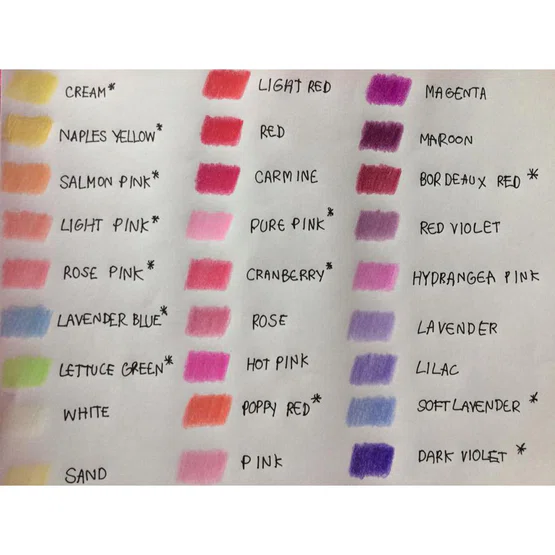 CREAM*
NAPLES YELLOW*
SALMON PINK*
LIGHT PINK*
ROSE PINK*
LAVENDER BLUE*
LETTUCE GREEN*
WHITE
SAND
LIGHT RED
RED
CARMINE
PURE PINK*
CRANBERRY*
ROSE
HOT PINK
POPPY RED*
PINK
MAGENTA
MAROON
BORDEAUX RED*
RED VIOLET
HYDRANGEA PINK
LAVENDER
LILAC
SOFT LAVENDER*
DARK VIOLET*